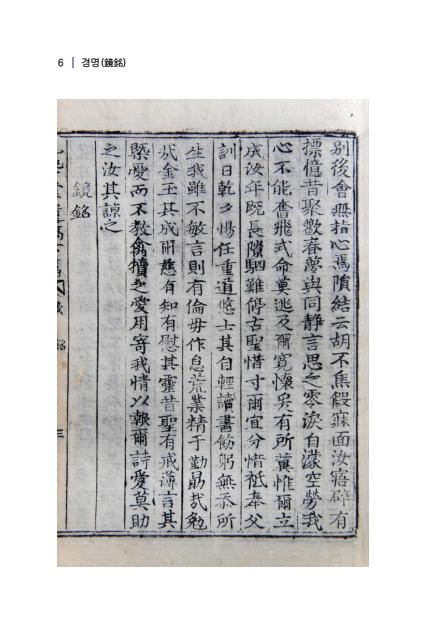 6 | 경명(鏡銘)
別後會無指心焉隕結云胡不焦假寐面汝寤辟有
摽憶昔聚歡春夢與同靜言思之零淚自濛空勞我
心不能奮飛式命莫逃及爾寬懷矣有所冀惟爾立
成汝年旣長隙駟難停古聖惜寸爾宜分惜祗奉父
訓日乾夕惕任重道悠士其自輕讀書飭躬無忝所
生我雖不敏言則有倫毋作怠荒業精于勤勗哉勉
哉金玉其成研慈有知有慰其靈昔聖有戒薄言其
槩愛而不敎禽犢之愛用寄我情以報爾詩愛莫助
之汝其諒之
鏡銘